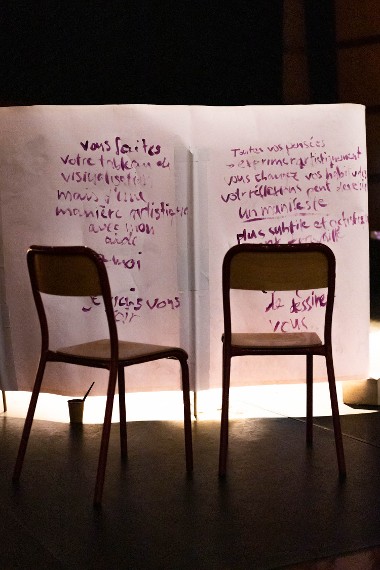 vous faites
votre tableau de
visualisation
mais d'une
manière artistique
avec mon
aide
moi
je viens vous
voir
Toutes vos pensées
exprimer artistiquement
vous changez vos habitudes
vos réflexions peut devenir
un manifeste
plus subtile et
de dessiner
vous